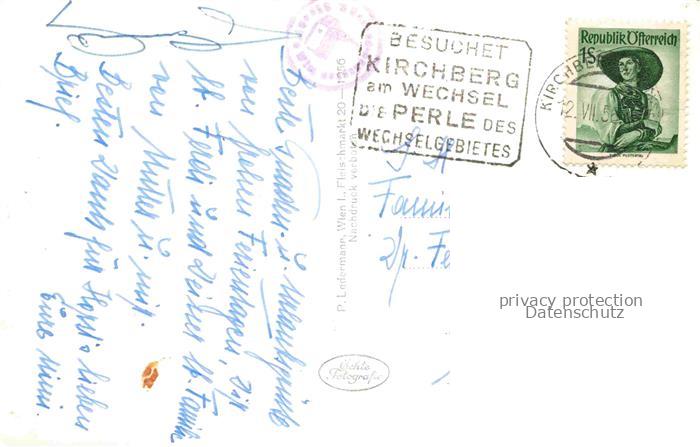 BESUCHET
KIRCHBERG
am WECHSEL
DIE PERLE DES
WECHSELGEBIETES
Republik Österreich
1S
KIRCHBE
12. VII. 5
P. Ledermann, Wien I., Fleischmarkt 20 — 1956
Nachdruck verboten
Echte
Fotografie
Beste Grüße u.
von frohen Ferientagen, Dir
lb. Ferdi und Deiner lb. Familie
von Mutter u. mir.
Besten Dank für Horsts lieben
Brief.
Eure Mimi
Famil
privacy protection
Datenschutz